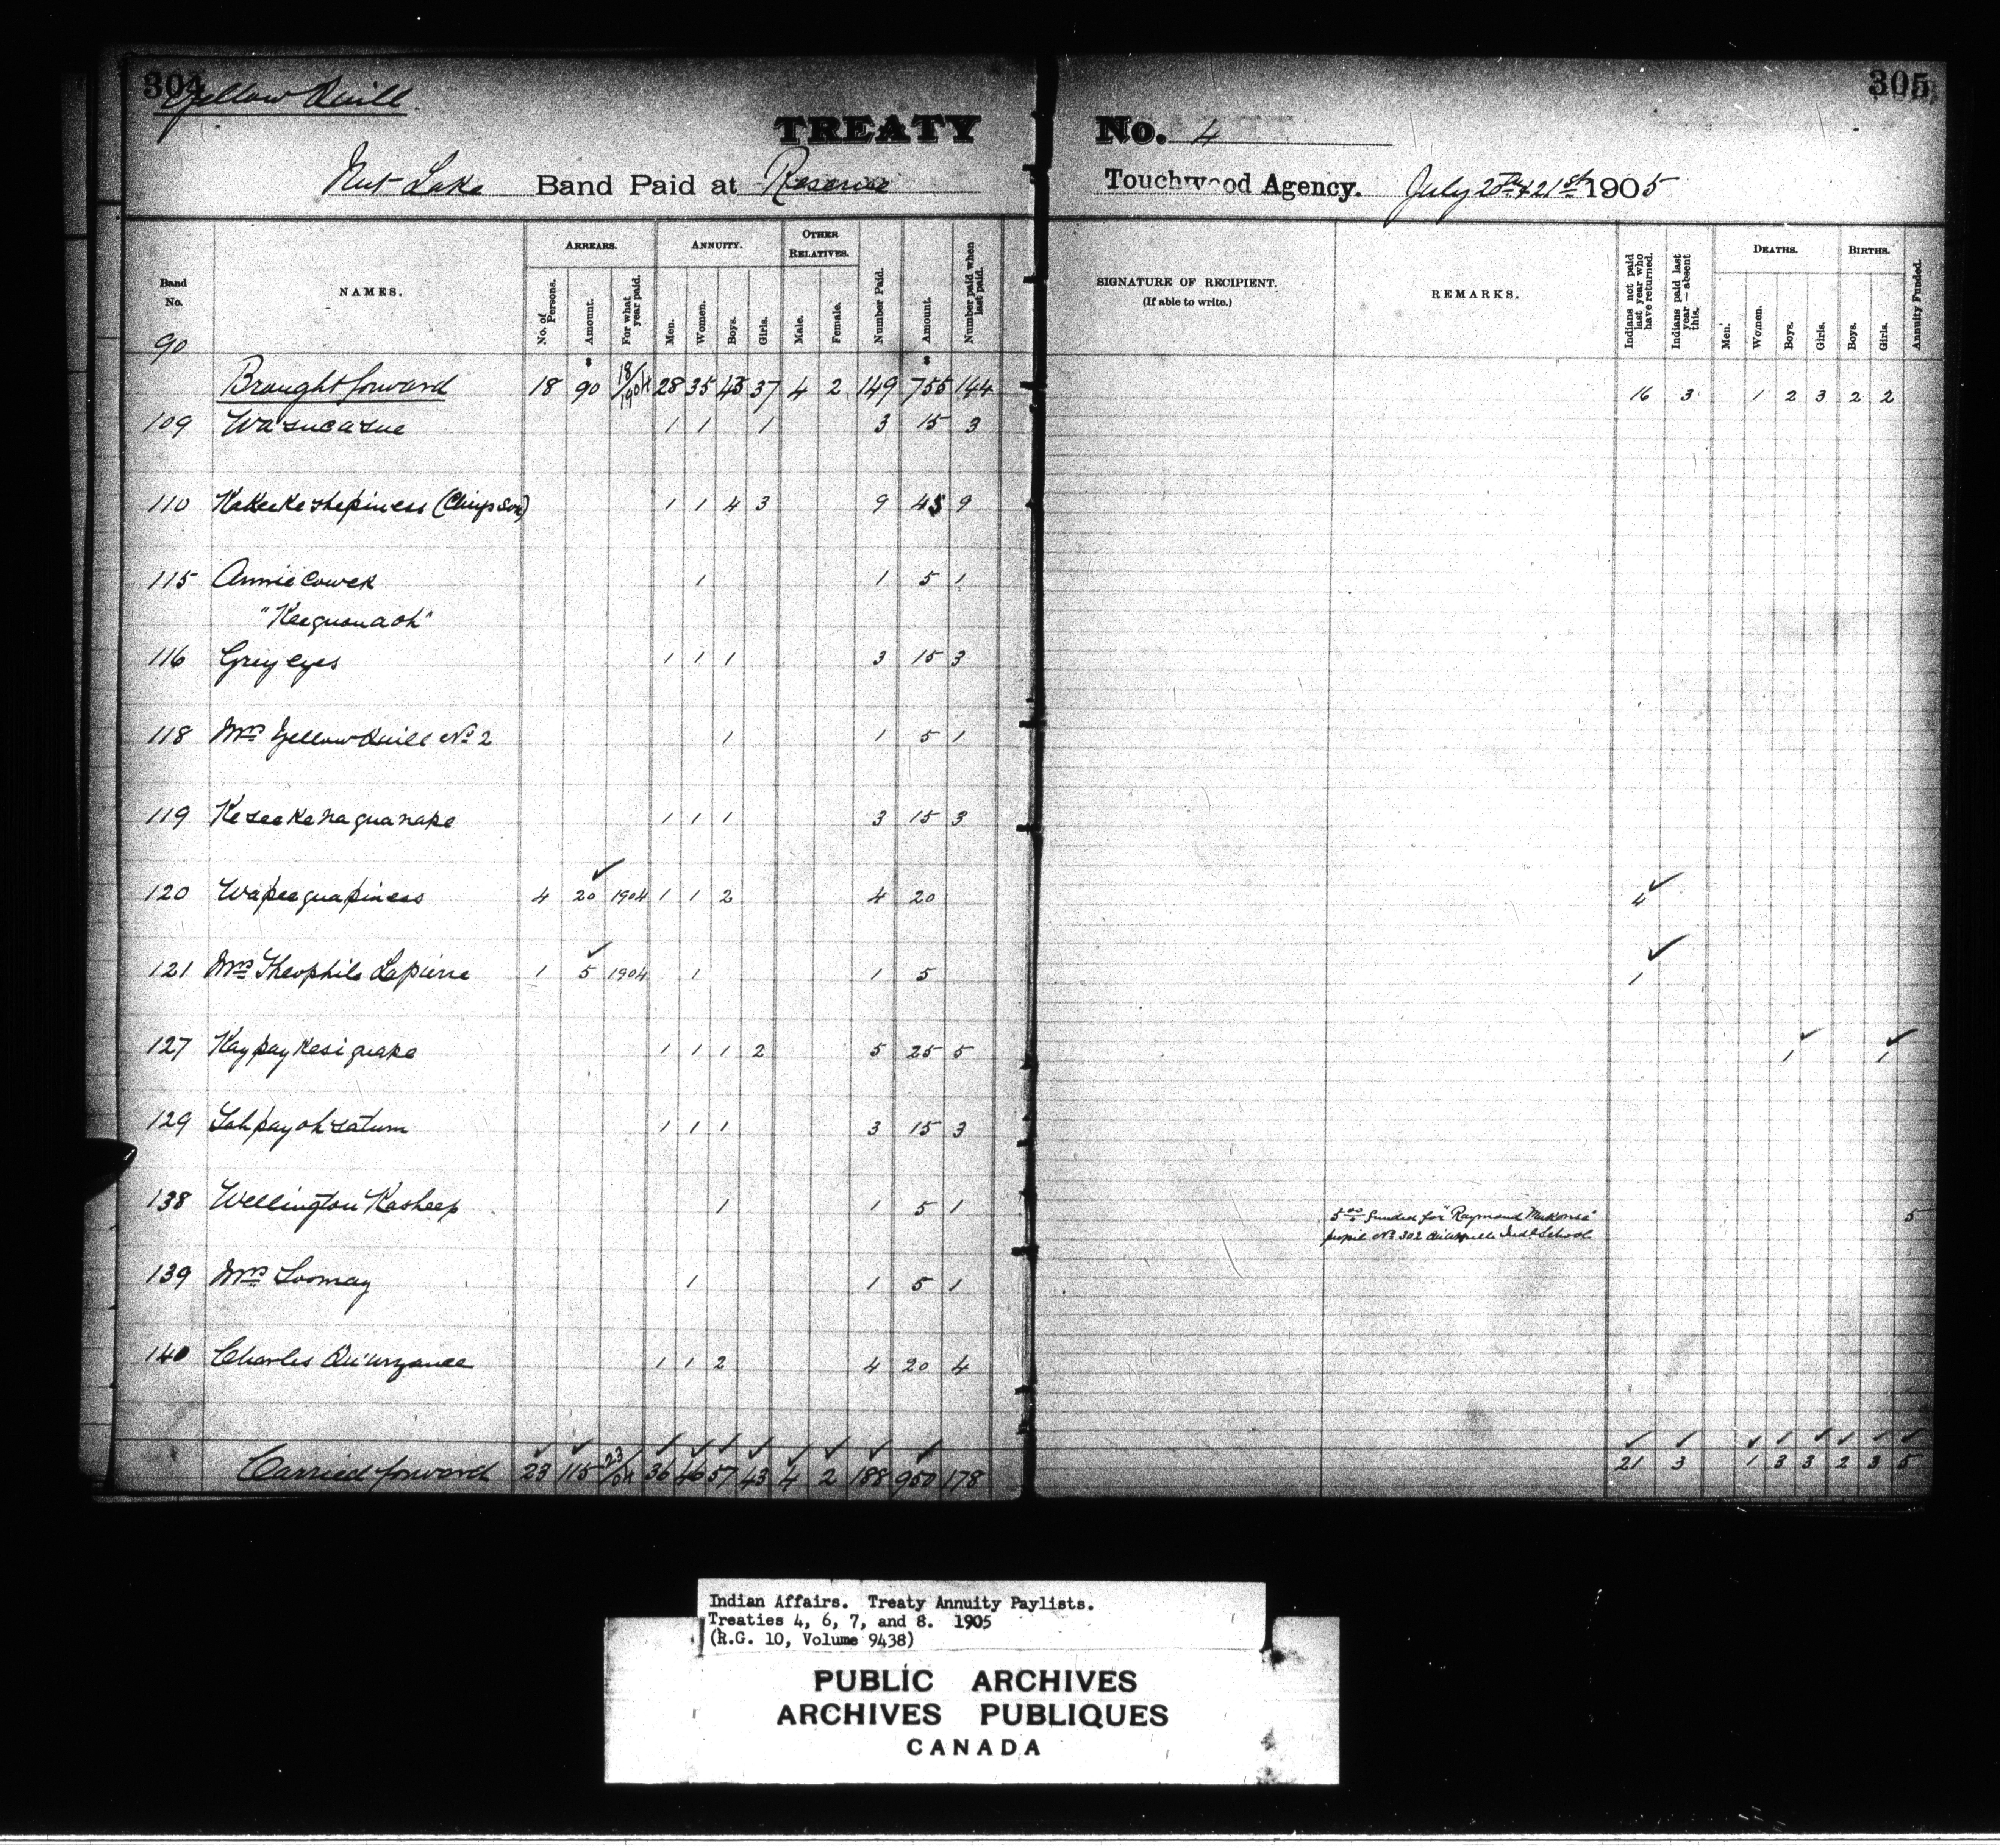 304
Yellow Quill
305
TREATY No. 4
Nut Lake Band Paid at Reserve
Touchwood Agency. July 20th & 21st 1905
Band No.
NAMES.
ARREARS.
No. of Persons.
Amount.
For what year paid.
ANNUITY.
Men.
Women.
Boys.
Girls.
OTHER RELATIVES.
Male.
Female.
Number Paid.
Amount.
Number paid when last paid.
SIGNATURE OF RECIPIENT.
(If able to write.)
REMARKS.
Indians not paid last year who have returned.
Indians paid last year—absent this.
DEATHS.
Men.
Women.
Boys.
Girls.
BIRTHS.
Boys.
Girls.
Annuity Funded.
90
Brought forward 18 90 18/1904 28 35 45 37 4 2 149 755 144 16 3 1 2 3 2 2
109 Wasucasue 1 1 1 3 15 3
110 Kakeekeshepiness (Chiefs Son) 1 1 4 3 9 45 9
115 Annie Cowek 1 1 5 1
"Keequonaoh"
116 Grey eyes 1 1 1 3 15 3
118 Mrs Yellow Quill No 2 1 1 5 1
119 Keseekenaquanape 1 1 1 3 15 3
120 Wapeequapiness 4 20 1904 1 1 2 4 20 4
121 Mrs Theophile Lapierre 1 5 1904 1 1 5 1
127 Kaypaykesiquape 1 1 1 2 5 25 5 1 1
129 Tahpayohsatum 1 1 1 3 15 3
138 Wellington Kasheep 1 1 5 1 5
5.00 funded for "Raymond
pupil No 302 Qu'Appelle Indl School
139 Mrs Loomay 1 1 5 1
140 Charles 1 1 2 4 20 4
Carried forward 23 115 23/04 36 46 57 43 4 2 188 950 178 21 3 1 3 3 2 3 5
Indian Affairs. Treaty Annuity Paylists.
Treaties 4, 6, 7, and 8. 1905
(R.G. 10, Volume 9438)
PUBLIC ARCHIVES
ARCHIVES PUBLIQUES
CANADA